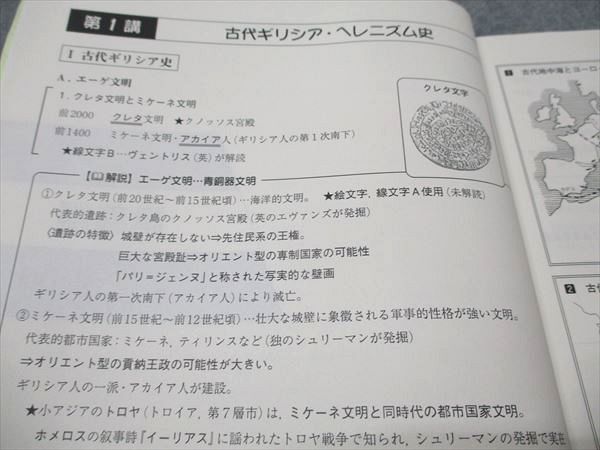 第1講 古代ギリシア・ヘレニズム史
Ⅰ 古代ギリシア史
A. エーゲ文明
1. クレタ文明とミケーネ文明
前2000 クレタ文明 ★クノッソス宮殿
前1400 ミケーネ文明・アカイア人(ギリシア人の第1次南下)
★線文字B…ヴェントリス(英)が解読
クレタ文字
【解説】エーゲ文明…青銅器文明
①クレタ文明(前20世紀~前15世紀頃)…海洋的文明。 ★絵文字,線文字A使用(未解読)
代表的遺跡:クレタ島のクノッソス宮殿(英のエヴァンズが発掘)
〈遺跡の特徴〉城壁が存在しない⇒先住民系の王権。
巨大な宮殿趾⇒オリエント型の専制国家の可能性
「パリ=ジェンヌ」と称された写実的な壁画
ギリシア人の第一次南下(アカイア人)により滅亡。
②ミケーネ文明(前15世紀~前12世紀頃)…壮大な城壁に象徴される軍事的性格が強い文明。
代表的都市国家:ミケーネ,ティリンスなど(独のシュリーマンが発掘)
⇒オリエント型の貢納王政の可能性が大きい。
ギリシア人の一派・アカイア人が建設。
★小アジアのトロヤ(トロイア,第7層市)は,ミケーネ文明と同時代の都市国家文明。
ホメロスの叙事詩『イーリアス』に謡われたトロヤ戦争で知られ,シュリーマンの発掘で実在
1 古代地中海とヨーロ
2 古代